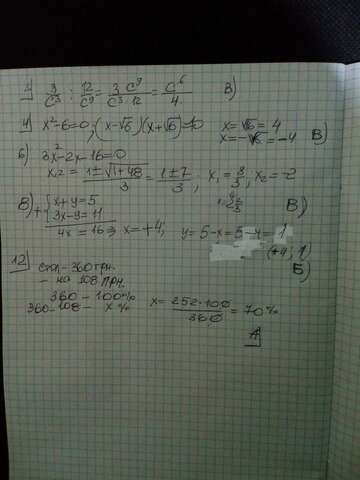 2) 3/c³ : 12/c⁹ = 3c⁹/c³·12 = c⁶/4 В)
4) x²-6=0; (x-√6)(x+√6)=10 x=√6=4
x=-√6=-4 В)
6) 3x²-2x-16=0
x₁,₂ = 1±√1+48/3 = 1±7/3; x₁=8/3; x₂=-2
8) + { x+y=5 В)
3x-y=11
4x=16 ⇒ x=+4, y=5-x=5-4=1
(+4; 1)
Б)
12) стл-360грн.
- на 108 грн.
360-100%
360-108- x% x=252·100/360=70%
A